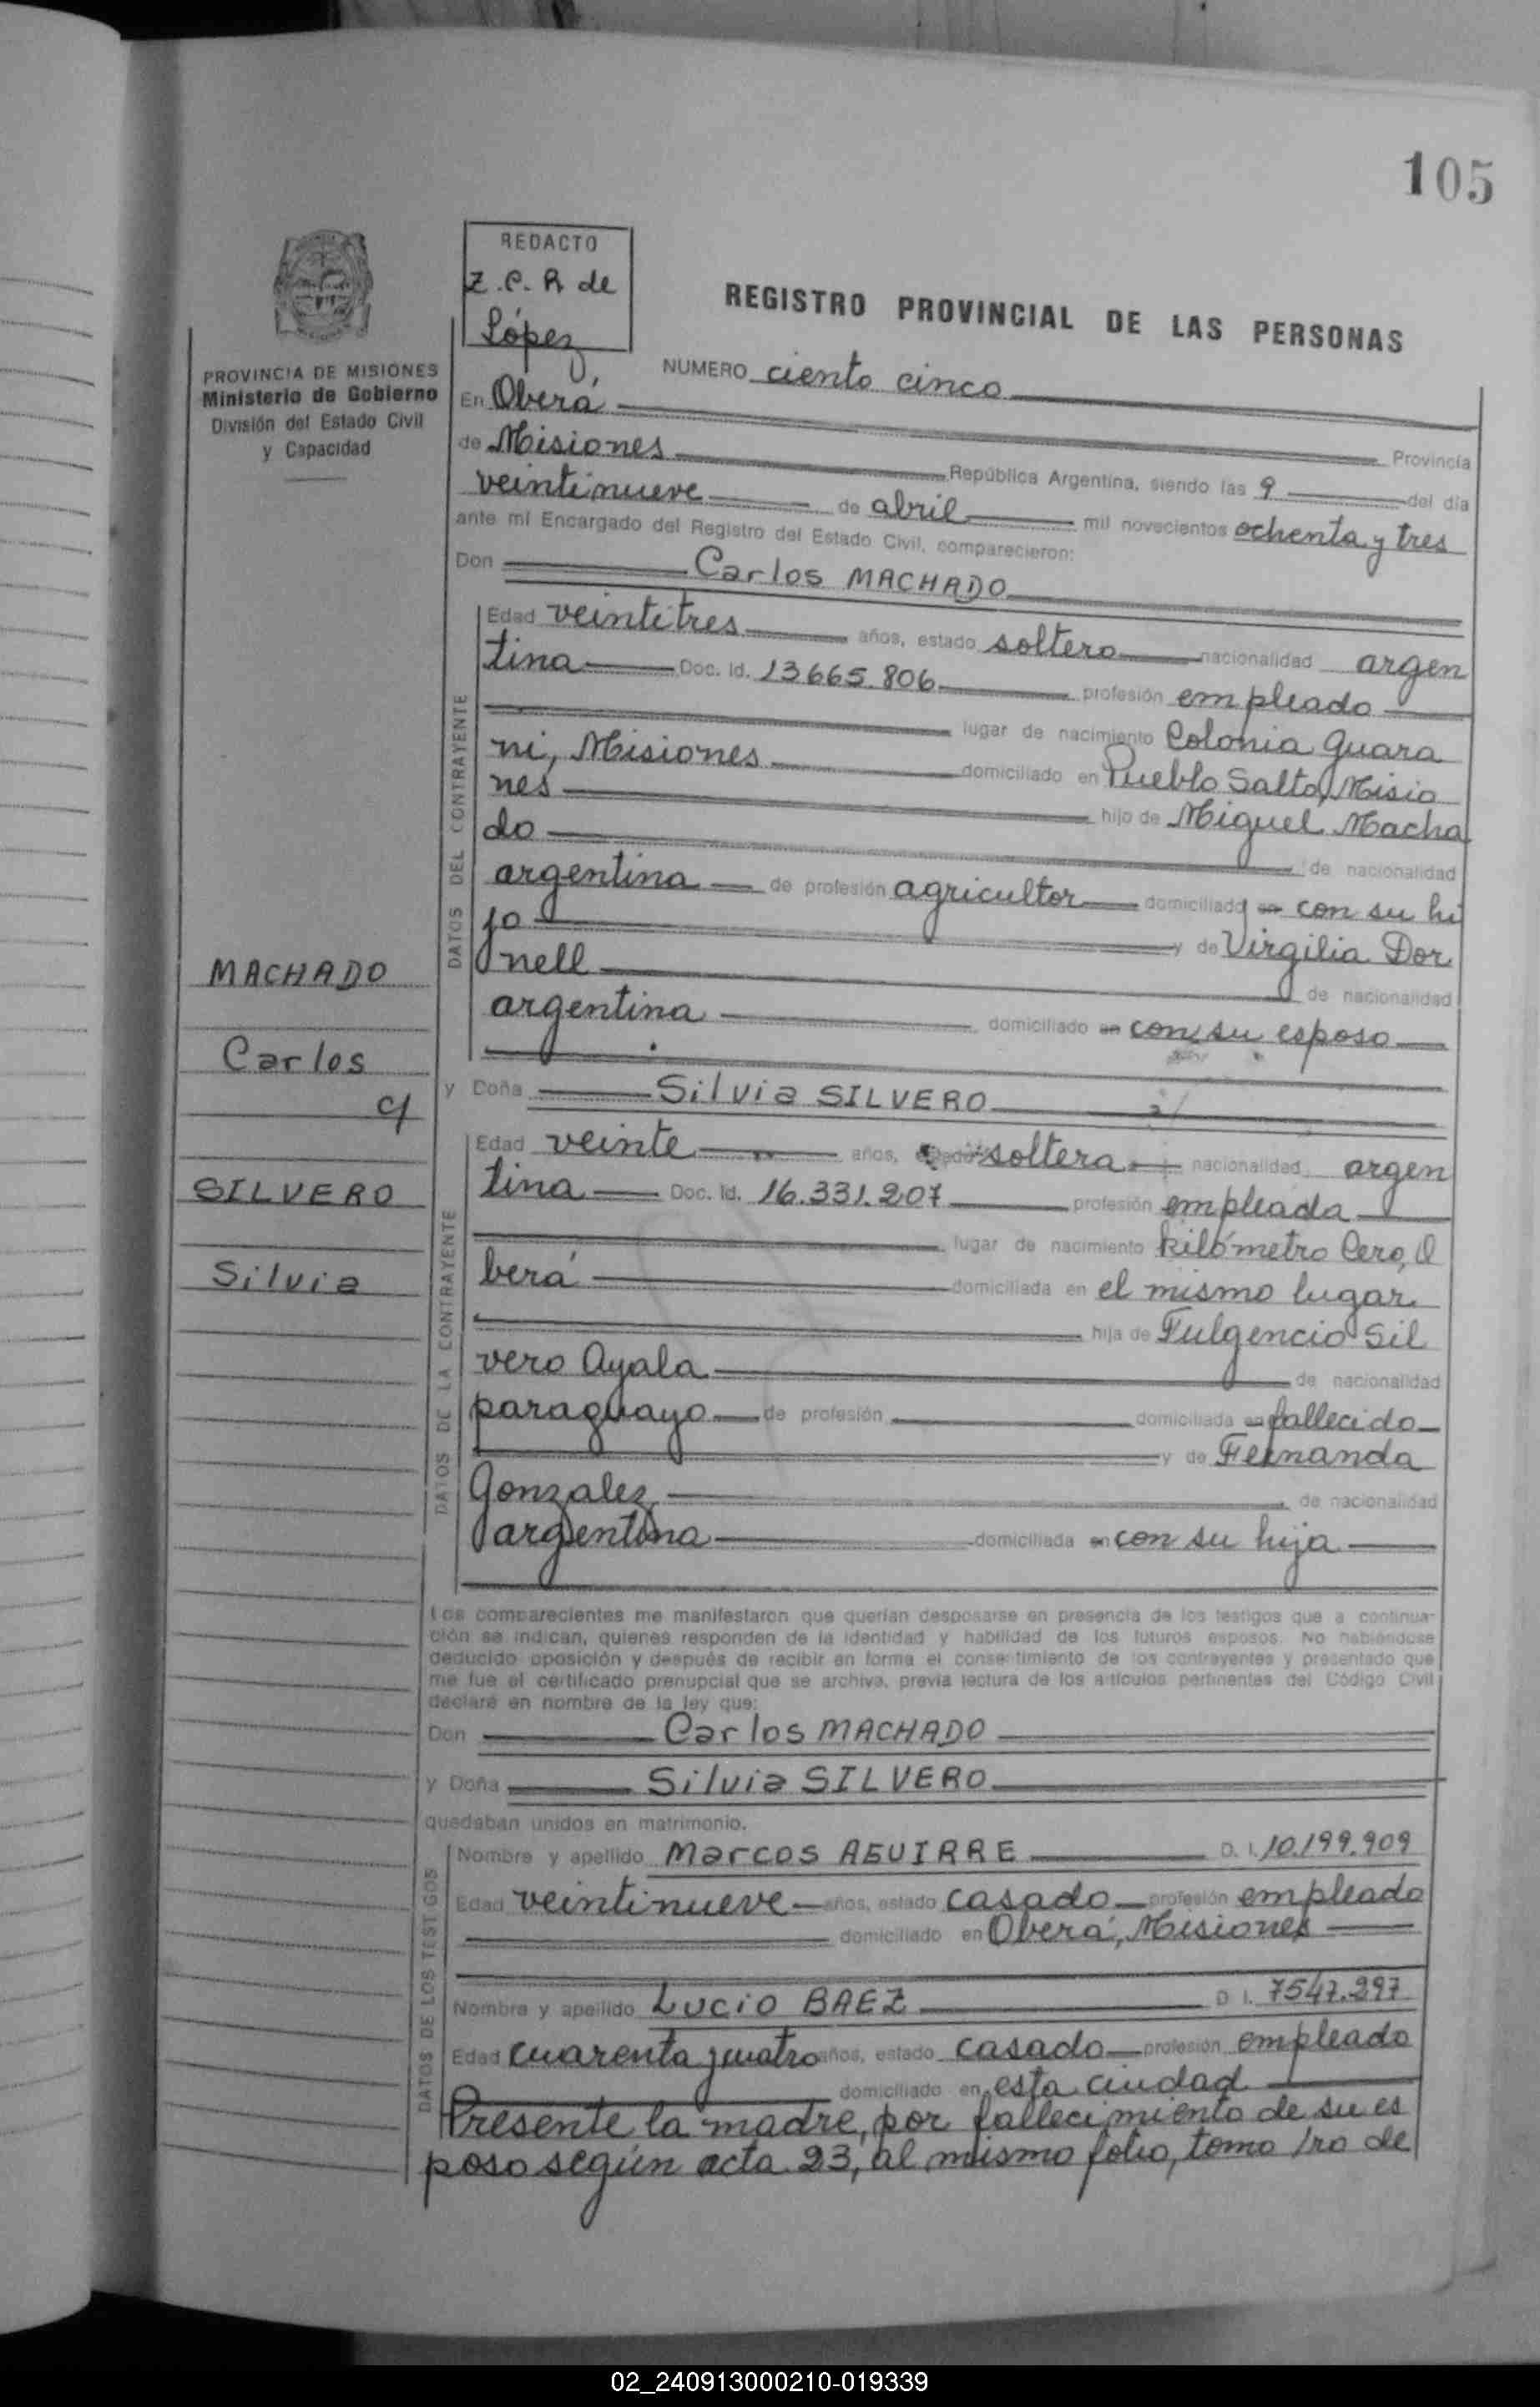 105
REDACTO
Z.C.R de
López
REGISTRO PROVINCIAL DE LAS PERSONAS
PROVINCIA DE MISIONES
Ministerio de Gobierno
División del Estado Civil
y Capacidad
NUMERO ciento cinco
En Oberá Provincia
de Misiones República Argentina, siendo las 9 del día
veintinueve de abril mil novecientos ochenta y tres
ante mí Encargado del Registro del Estado Civil, comparecieron:
Don Carlos MACHADO
DATOS DEL CONTRAYENTE
Edad veintitres años, estado soltero nacionalidad argen
tina Doc. Id. 13665.806 profesión empleado
lugar de nacimiento Colonia Guara
ni, Misiones domiciliado en Pueblo Salto, Misio
nes hijo de Miguel Macha
do de nacionalidad
argentina de profesión agricultor domiciliado en con su hi
jo y de Virgilia Dor
nell de nacionalidad
argentina domiciliado en con su esposo
MACHADO
Carlos
c/
SILVERO
Silvia
y Doña Silvia SILVERO
DATOS DE LA CONTRAYENTE
Edad veinte años, estado soltera nacionalidad argen
tina Doc. Id. 16.331.207 profesión empleada
lugar de nacimiento kilómetro Cero, O
berá domiciliada en el mismo lugar
hija de Fulgencio Sil
vero Ayala de nacionalidad
paraguayo de profesión domiciliada en fallecido
y de Fernanda
Gonzalez de nacionalidad
argentina domiciliada en con su hija
Los comparecientes me manifestaron que querían desposarse en presencia de los testigos que a continua-
ción se indican, quienes responden de la identidad y habilidad de los futuros esposos. No habiéndose
deducido oposición y después de recibir en forma el consentimiento de los contrayentes y presentado que
me fue el certificado prenupcial que se archiva, previa lectura de los artículos pertinentes del Código Civil
declaré en nombre de la ley que:
Don Carlos MACHADO
y Doña Silvia SILVERO
quedaban unidos en matrimonio.
DATOS DE LOS TESTIGOS
Nombre y apellido Marcos AGUIRRE D. I. 10.199.909
Edad veintinueve años, estado casado profesión empleado
domiciliado en Oberá, Misiones
Nombre y apellido Lucio BAEZ D. I. 7547.297
Edad cuarenta y cuatro años, estado casado profesión empleado
domiciliado en esta ciudad
Presente la madre, por fallecimiento de su es
poso según acta 23, al mismo folio, tomo 1ro de
02_240913000210-019339